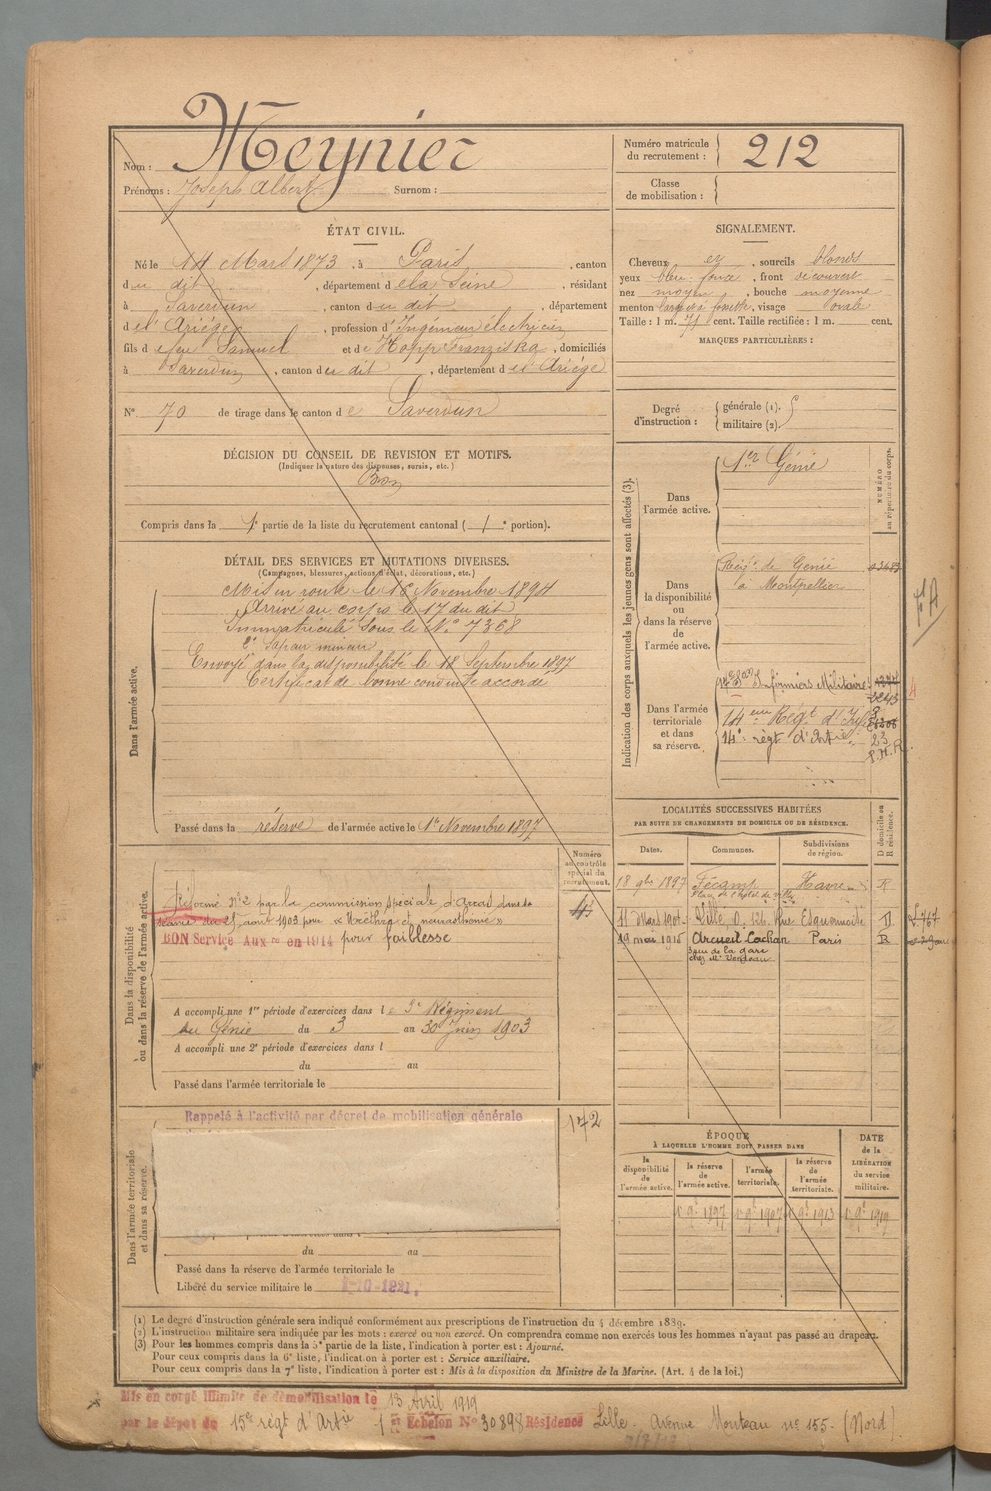 Nom : Meynier
Prénoms : Joseph Albert Surnom :
Numéro matricule du recrutement : 212
Classe de mobilisation :
ÉTAT CIVIL.
Né le 14 Mars 1873, à Paris, canton
du dit, département de la Seine, résidant
à Saverdun, canton du dit, département
de l'Ariège, profession d'Ingénieur électricien
fils de feu Samuel et de Hopp Franziska, domiciliés
à Saverdun, canton du dit, département de l'Ariège
N° 70 de tirage dans le canton de Saverdun
SIGNALEMENT.
Cheveux et, sourcils blonds
yeux bleu foncé, front découvert
nez moyen, bouche moyenne
menton à fossette, visage ovale
Taille : 1 m. 71 cent. Taille rectifiée : 1 m. cent.
MARQUES PARTICULIÈRES :
Degré d'instruction : générale (1). 5
militaire (2).
DÉCISION DU CONSEIL DE REVISION ET MOTIFS.
(Indiquer la nature des dispenses, sursis, etc.)
Bon
Compris dans la 1e partie de la liste du recrutement cantonal ( 1e portion).
DÉTAIL DES SERVICES ET MUTATIONS DIVERSES.
(Campagnes, blessures, actions d'éclat, décorations, etc.)
Dans l'armée active.
Mis en route le 16 Novembre 1894
Arrivé au corps le 17 du dit
Immatriculé sous le N° 7368
2e Sapeur mineur
Envoyé dans la disponibilité le 18 Septembre 1897
Certificat de bonne conduite accordé
Passé dans la réserve de l'armée active le 1er Novembre 1897
Indication des corps auxquels les jeunes gens sont affectés (3).
NUMÉRO au répertoire du corps.
Dans l'armée active.
1er Génie
Dans la disponibilité ou dans la réserve de l'armée active.
Régt de Génie
à Montpellier
Dans l'armée territoriale et dans sa réserve.
Infirmiers Militaires
14eme Régt d'Inf
14e régt d'Artie
23
P.H.R.
LOCALITÉS SUCCESSIVES HABITÉES
PAR SUITE DE CHANGEMENTS DE DOMICILE OU DE RÉSIDENCE.
Dates. Communes. Subdivisions de région. D domicile ou R résidence.
18 9bre 1897 Fécamp Havre R
Place de l'hôtel de ville
11 Mars 1904 Lille, O, 126, Rue Esquermoise D
19 mai 1915 Arcueil Cachan Paris R
3 rue de la gare
Dans la disponibilité ou dans la réserve de l'armée active.
Numéro au contrôle spécial du recrutement.
Réformé N°2 par la commission spéciale d'Arras dans sa
séance du 25 août 1903 pour "Uréthrite et neurasthénie"
BON Service Auxre en 1914 pour faiblesse
A accompli une 1re période d'exercices dans le 3e Régiment
du Génie du 3 au 30 Juin 1903
A accompli une 2e période d'exercices dans l
du au
Passé dans l'armée territoriale le
Dans l'armée territoriale et dans sa réserve.
Rappelé à l'activité par décret de mobilisation générale
172
du au
Passé dans la réserve de l'armée territoriale le
Libéré du service militaire le 1-10-1921.
ÉPOQUE
À LAQUELLE L'HOMME DOIT PASSER DANS
la disponibilité de l'armée active. la réserve de l'armée active. l'armée territoriale. la réserve de l'armée territoriale. DATE de la LIBÉRATION du service militaire.
1 9bre 1897 1 9bre 1907 1 9bre 1913 1 9bre 1919
(1) Le degré d'instruction générale sera indiqué conformément aux prescriptions de l'instruction du 4 décembre 1889.
(2) L'instruction militaire sera indiquée par les mots : exercé ou non exercé. On comprendra comme non exercés tous les hommes n'ayant pas passé au drapeau.
(3) Pour les hommes compris dans la 5e partie de la liste, l'indication à porter est : Ajourné.
Pour ceux compris dans la 6e liste, l'indication à porter est : Service auxiliaire.
Pour ceux compris dans la 7e liste, l'indication à porter est : Mis à la disposition du Ministre de la Marine. (Art. 4 de la loi.)
Mis en congé illimité de démobilisation le 13 Avril 1919
par le dépôt du 15e régt d'Artie 1er Echelon N° 30898 Résidence Lille. Avenue n° 155 - (Nord)